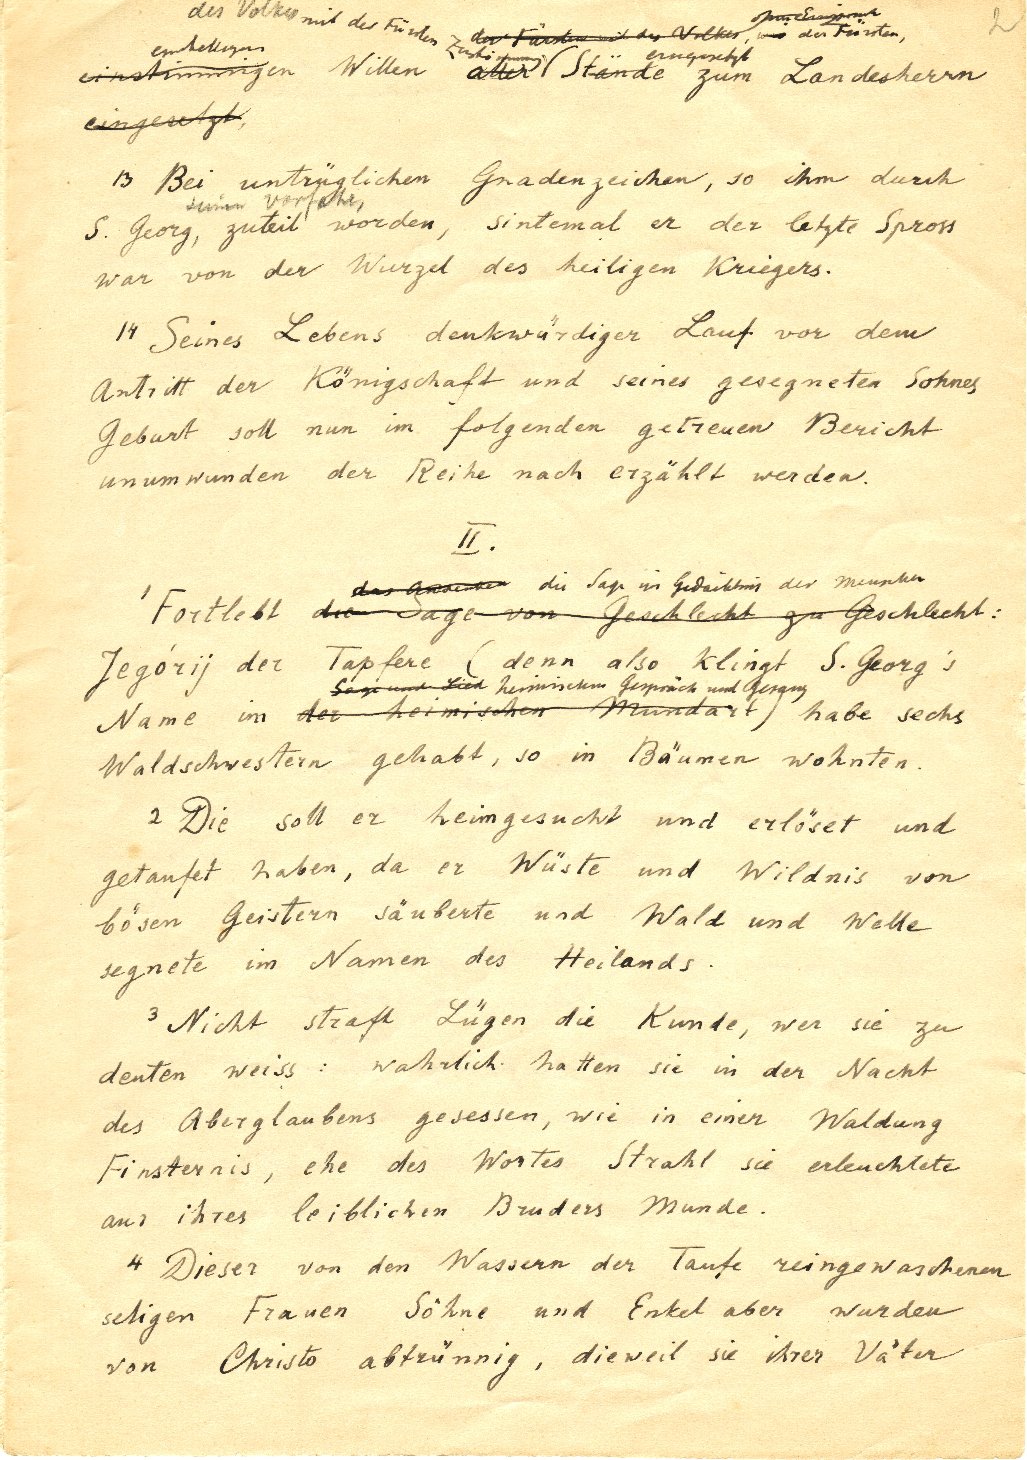 2
des Volkes mit der Fürsten Zustimmung
der Fürsten und des Volkes, ohne Einspruch der Fürsten,
einhelligen eingesetzt
einstimmigen Willen aller (Stände zum Landesherrn
eingesetzt,
13 Bei untrüglichen Gnadenzeichen, so ihm durch
seinen Vorfahr,
S. Georg, zuteil worden, sintemal er der letzte Spross
war von der Wurzel des heiligen Kriegers.
14 Seines Lebens denkwürdiger Lauf vor dem
Antritt der Königschaft und seines gesegneten Sohnes
Geburt soll nun im folgenden getreuen Bericht
unumwunden der Reihe nach erzählt werden.
II.
das die Sage im Gedächtnis der Menschen
1 Fortlebt die Sage von Geschlecht zu Geschlecht:
Jegórij der Tapfere (denn also klingt S. Georg's
Sage und Lied heimischem Gespräch und Gesang
Name im der heimischen Mundart) habe sechs
Waldschwestern gehabt, so in Bäumen wohnten.
2 Die soll er heimgesucht und erlöset und
getaufet haben, da er Wüste und Wildnis von
bösen Geistern säuberte und Wald und Welle
segnete im Namen des Heilands.
3 Nicht straft Lügen die Kunde, wer sie zu
deuten weiss: wahrlich hatten sie in der Nacht
des Aberglaubens gesessen, wie in einer Waldung
Finsternis, ehe des Wortes Strahl sie erleuchtete
aus ihres leiblichen Bruders Munde.
4 Dieser von den Wassern der Taufe reingewaschenen
seligen Frauen Söhne und Enkel aber wurden
von Christo abtrünnig, dieweil sie ihrer Väter